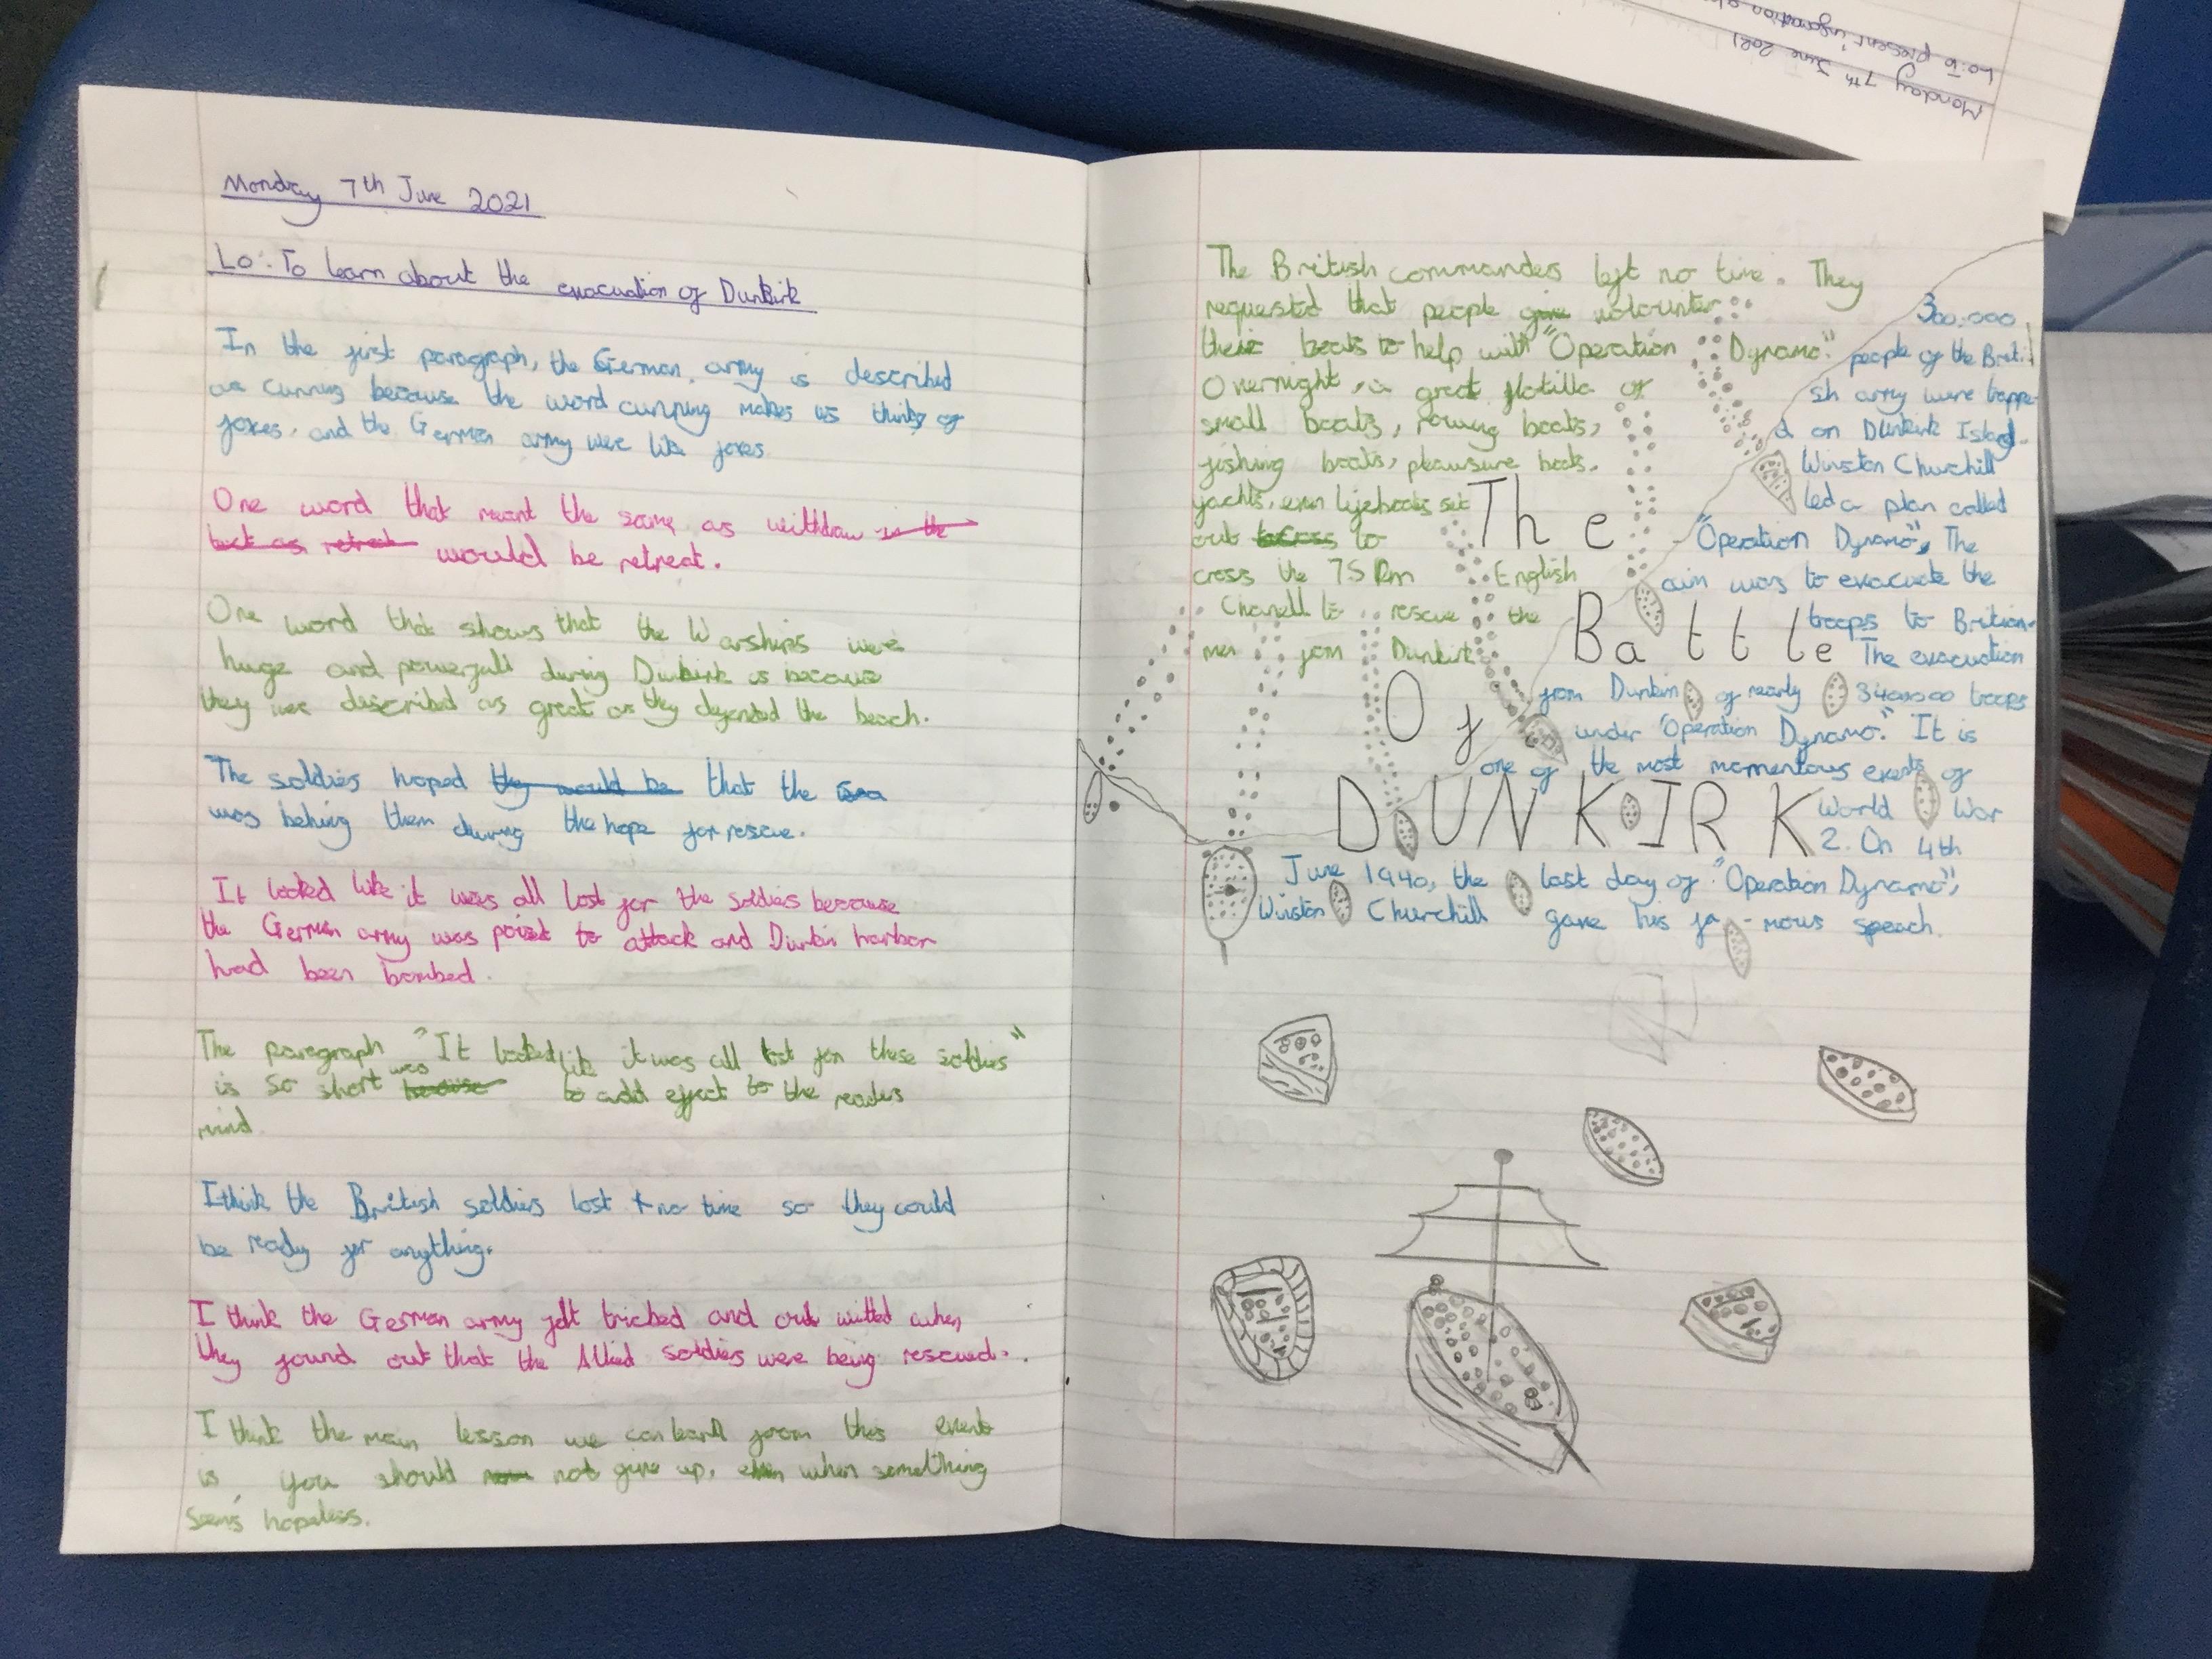 Monday 7th June 2021
Lo: To learn about the evacuation of Dunkirk
In the first paragraph, the German army is described
as cunning because the word cunning makes us think of
foxes, and the German army were like foxes
One word that meant the same as withdraw is the
but as retreat would be retreat.
One word that shows that the Warships were
huge and powerfull during Dunkirk is because
they were described as great as they defented the beach.
The soldies hoped they would be that the sea
was behing them during the hope for rescue.
It looked like it was all lost for the soldies because
the German army was poist to attack and Dunkin harbor
had been bombed.
The paragraph "It looked like it was all lost for these soldies"
is so short was to add effect to the readers
mind
I think the British soldies lost no time so they could
be ready for anything.
I think the German army felt tricked and out witted when
they found out that the Allied soldies were being rescued.
I think the main lesson we can learn from this event
is, you should not give up, even when something
seems hopeless.
The British commanders left no time. They
requested that people give volounter
their boats to help with "Operation Dynamo".
Overnight, a great flotilla of
small boats, rowing boats,
fishing boats, pleausure boats.
yachts, even lifeboats set
out to
cross the 75 km English
Chanell to rescue the
men from Dunkirk
The
Battle
Of
DUNKIRK
300,000
people of the Briti
sh army were trappe-
d on Dunkirk Island.
Winston Churchill
led a plan called
"Operation Dynamo", The
aim was to evacuate the
troops to Britian.
The evacuation
from Dunkin of nearly 340,000 troops
under "Operation Dynamo." It is
one of the most momentous events of
World War
2. On 4th
June 1940, the last day of "Operation Dynamo",
Winston Churchill gave his fa-mous speach.
Monday 7th June 2021
Lo: To present information